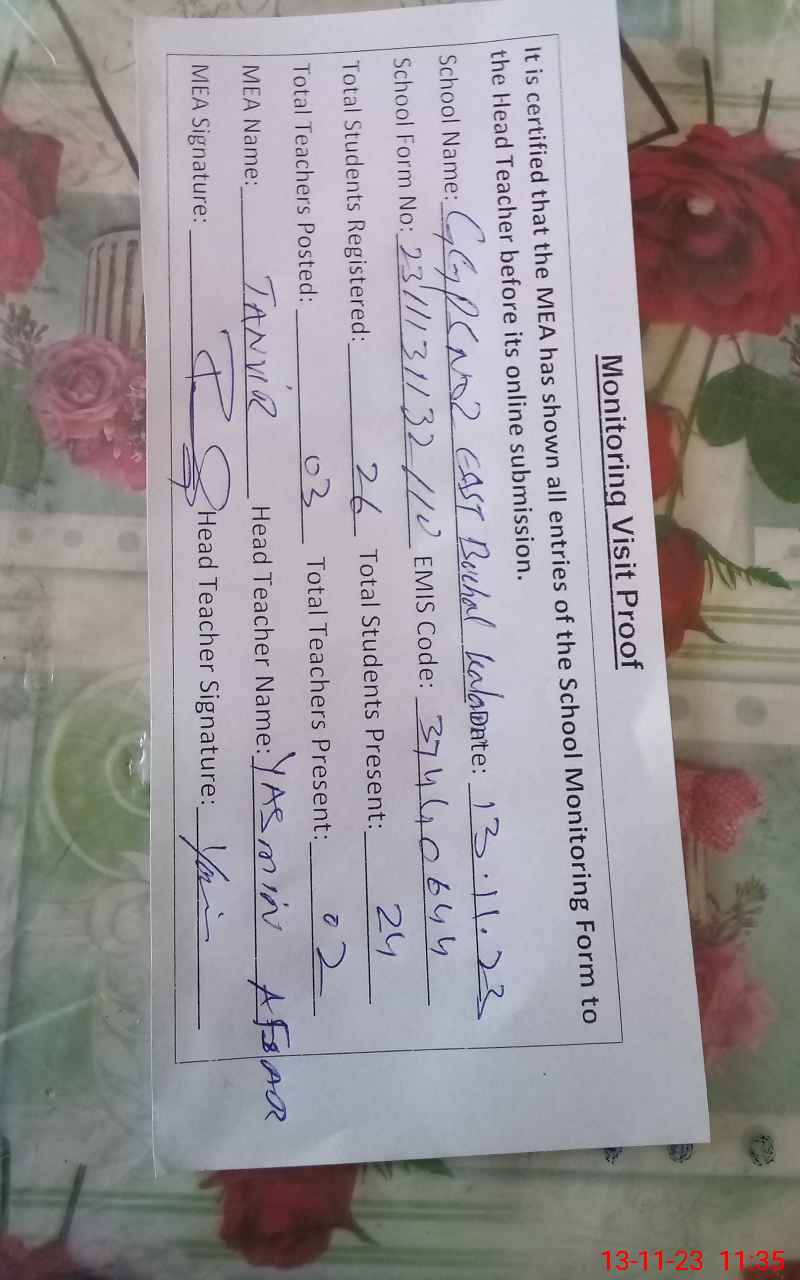 Monitoring Visit Proof
It is certified that the MEA has shown all entries of the School Monitoring Form to
the Head Teacher before its online submission.
School Name: GGPS No2 EAST Buchal Kalan Date: 13.11.23
School Form No: 2311131132110 EMIS Code: 37440644
Total Students Registered: 26 Total Students Present: 24
Total Teachers Posted: 03 Total Teachers Present: 02
MEA Name: TANVIR Head Teacher Name: YASMIN AFSAR
MEA Signature: Head Teacher Signature:
13-11-23 11:35